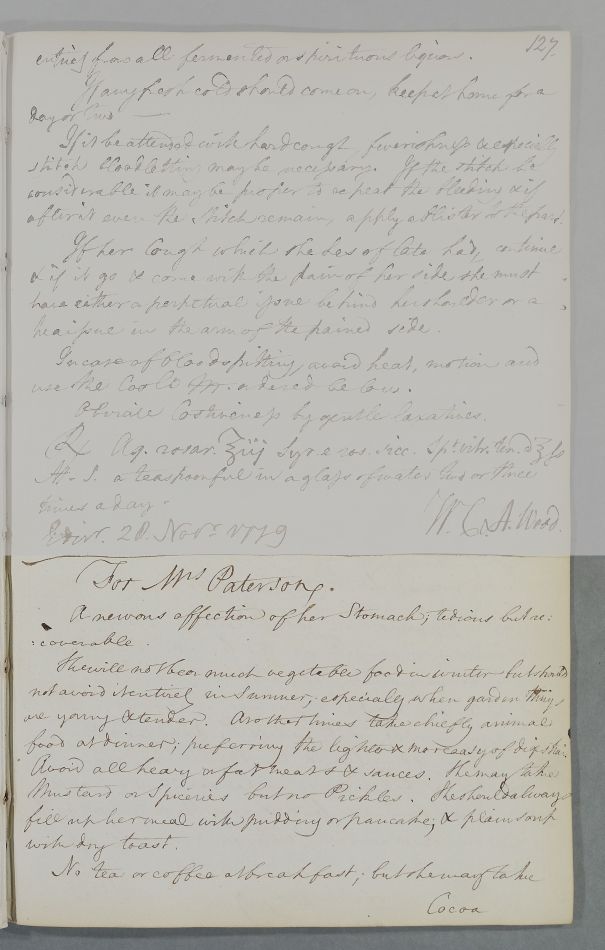 127.
entirely from all fermented or spirituous liquors.
If any fresh cold should come on, keep at home for a
day or two —
If it be attended with hard cough, feverishness & especially
stitch bloodletting may be necessary. If the stitch be
considerable it may be proper to repeat the bleeding & if
after it even the stitch remain, apply a blister to the part.
If her Cough which she has of late had, continue
& if it go & come with the pain of her side she must
have either a perpetual issue behind her shoulder or a
pea issue in the arm of the pained side.
In case of bloodspitting, avoid heat, motion and
use the Cool below.
Obviate Costiveness by gentle laxatives.
℞ Aq. rosar. ℥iij Syr. e ros. sicc. Spt. vitr. ten. a ℥ss
M. S. a teaspoonful in a glass of water two or three
times a day.
Edinr. 28 Novr. 1779 W. C. A. Wood.
For Mrs Paterson.
A nervous affection of her Stomach; tedious but re:
:coverable.
She will not bear much vegetable food in winter but should
not avoid it entirely in Summer, especially when garden things
are young & tender. At other times take chiefly animal
food at dinner; preferring the light & more easy of digestion.
Avoid all heavy or fat meats & sauces. She may take
Mustard or Spiceries but no Pickles. She should always
fill up her meal with pudding or pancake; & plain soup
with dry toast.
No tea or coffee at breakfast; but she may take
Cocoa